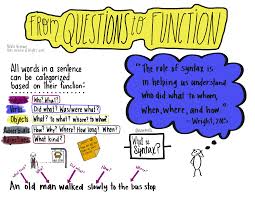 FROM QUESTIONS to FUNCTION
All words in a sentence
can be categorized
based on their function:
Who? What?
Verbs Did what? Was/were what?
Objects What? to what? whom? to whom?
Adverbials How? Why? Where? How long? When?
Adjectives What kind?
"The role of syntax is
in helping us understand
who did what to whom,
when, where, and how."
-Wright, 2015
What is
Syntax?
An old man walked slowly to the bus stop